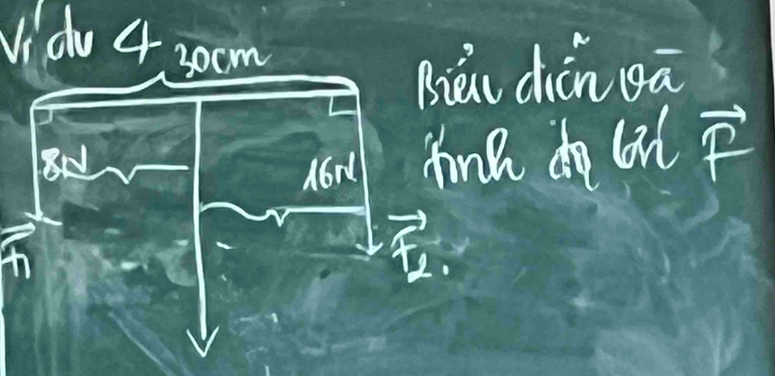 Ví dụ 4
30cm
Biểu diễn và
tính độ lớn F
8N
16N
F₁
F₂.